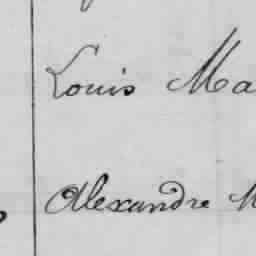 Louis Ma
Alexandre M